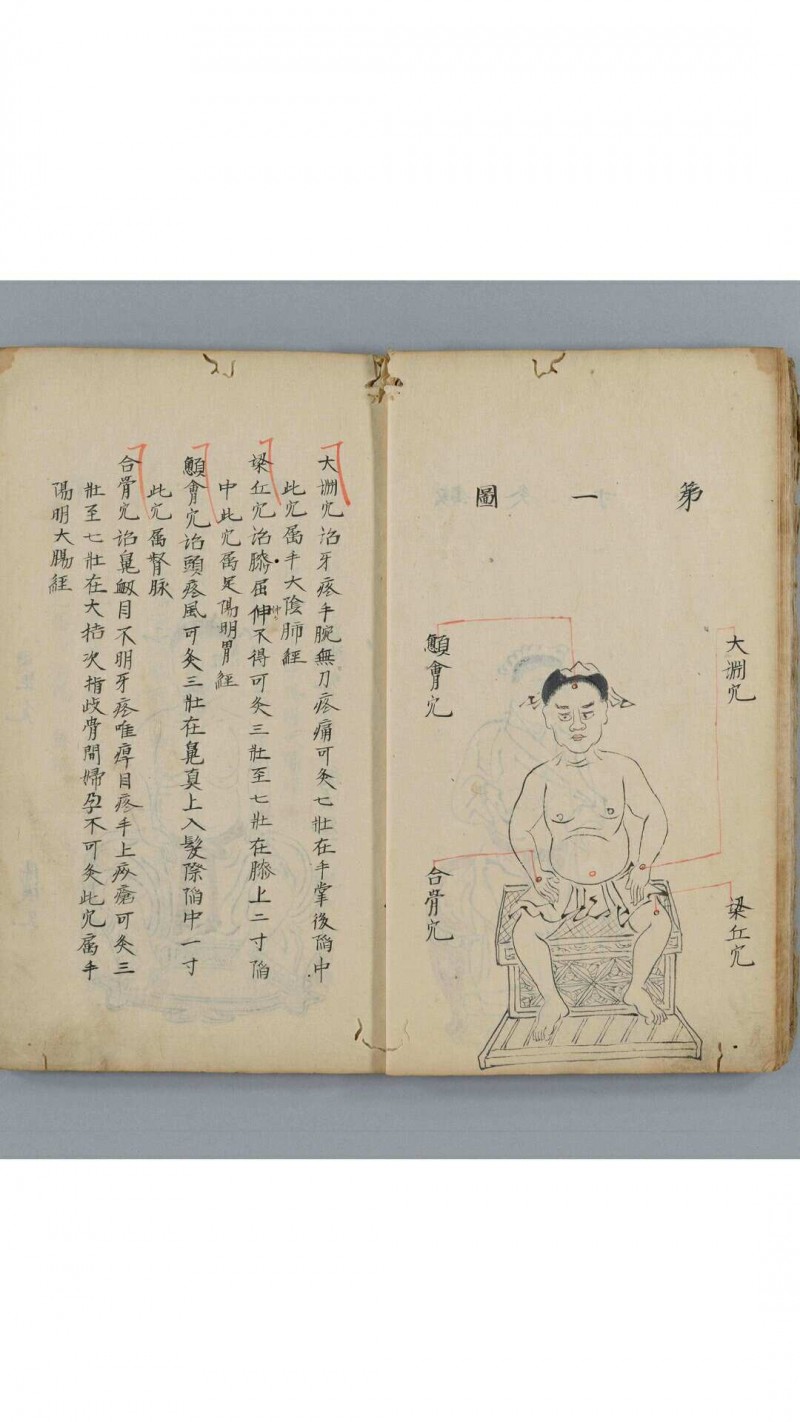 第一圖
大渊穴
梁丘穴
顖會穴
合骨穴
大渊穴治牙疼手腕無刀疼痛可灸七壯在手掌後陷中
此穴属手大陰肺經
梁丘穴治膝屈伸不得可灸三壯至七壯在膝上二寸陷
中此穴属足陽明胃經
顖會穴治頭疼風可灸三壯在鼻真上入髮際陷中一寸
此穴属督脉
合骨穴治鼻衂目不明牙疼喉痺目疼手上疼瘡可灸三
壯至七壯在大指次指歧骨間婦孕不可灸此穴属手
陽明大腸經